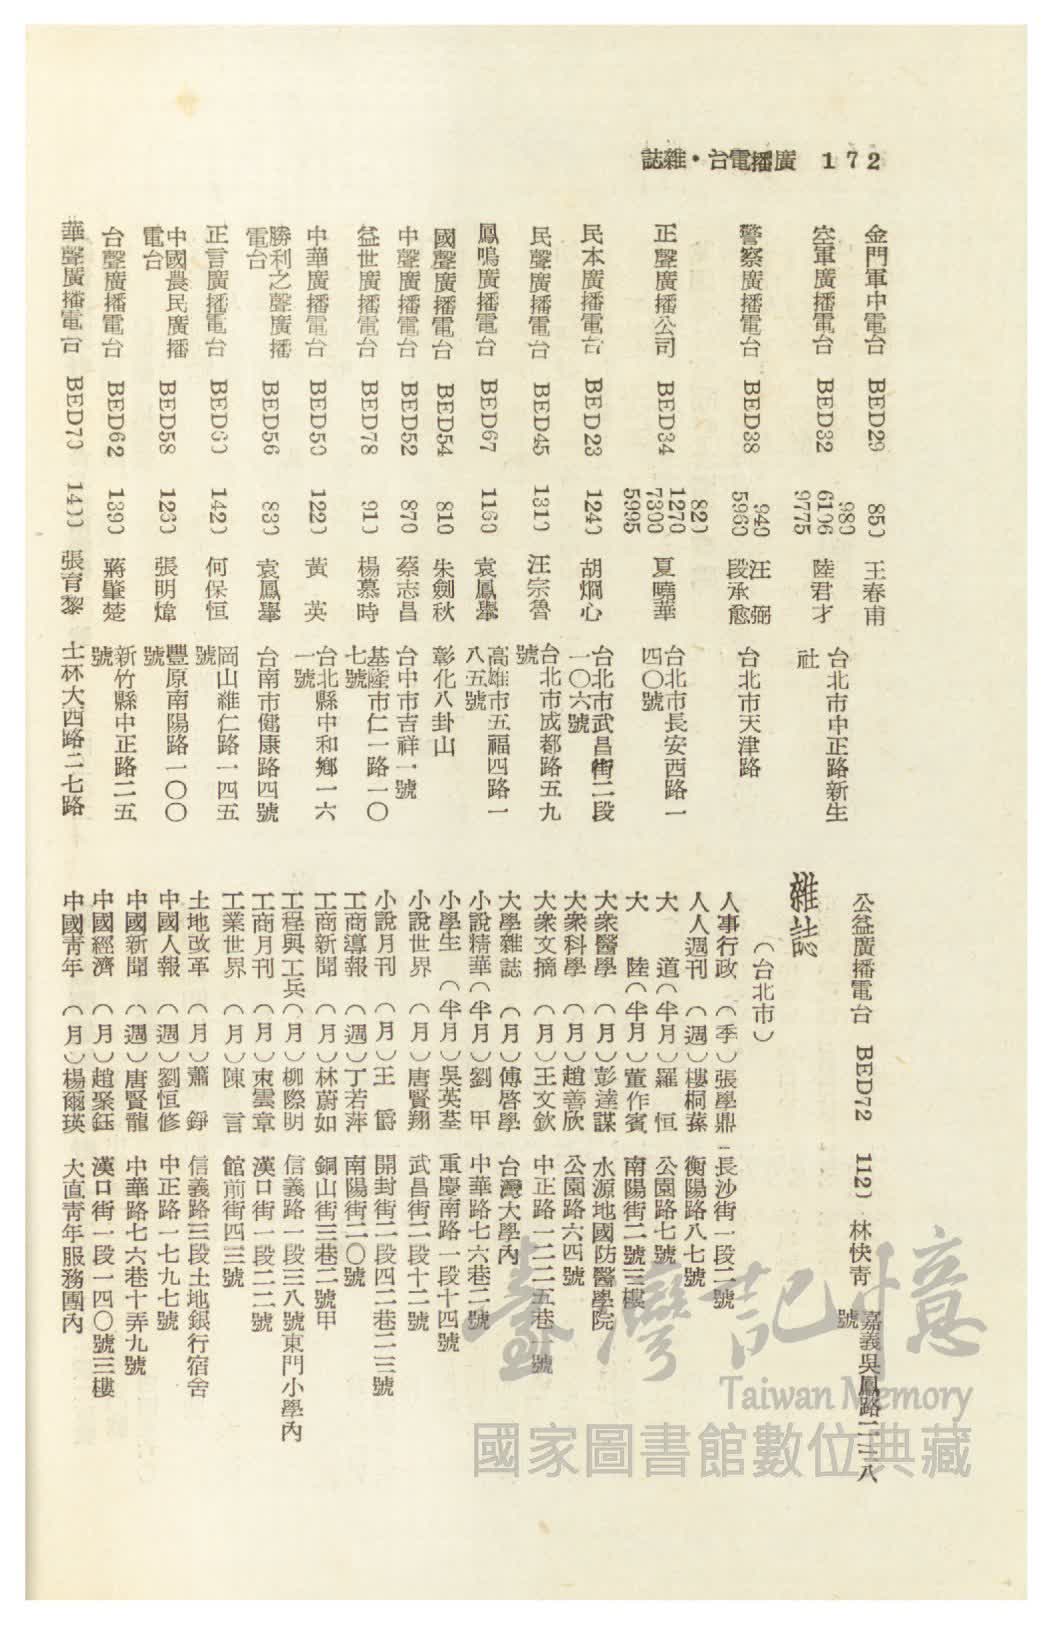 172 廣播電台・雜誌
金門軍中電台 BED29 850 王春甫
空軍廣播電台 BED32 980 6106 9775 陸君才 台北市中正路新生社
警察廣播電台 BED38 940 5960 汪弼 段承愈 台北市天津路
正聲廣播公司 BED34 820 1270 7300 5995 夏曉華 台北市長安西路一四〇號
民本廣播電台 BED23 1240 胡炯心 台北市武昌街二段一〇六號
民聲廣播電台 BED45 1310 汪宗魯 台北市成都路五九號
鳳鳴廣播電台 BED67 1160 袁鳳舉 高雄市五福四路一八五號
國聲廣播電台 BED54 810 朱劍秋 彰化八卦山
中聲廣播電台 BED52 870 蔡志昌 台中市吉祥一號
益世廣播電台 BED78 910 楊慕時 基隆市仁一路一〇七號
中華廣播電台 BED50 1220 黃 英 台北縣中和鄉一六一號
勝利之聲廣播電台 BED56 830 袁鳳舉 台南市健康路四號
正言廣播電台 BED60 1420 何保恒 岡山維仁路一四五號
中國農民廣播電台 BED58 1260 張明煒 豐原南陽路一〇〇號
台聲廣播電台 BED62 1390 蔣肇楚 新竹縣中正路二五號
華聲廣播電台 BED70 1400 張育黎 士林大西路二七路
公益廣播電台 BED72 1120 林快青 嘉義吳鳳路二三八號
雜誌
（台北市）
人事行政 （季）張學鼎 長沙街一段二號
人人週刊 （週）樓桐蓀 衡陽路八七號
大 道（半月）羅 恒 公園路七號
大 陸（半月）董作賓 南陽街二號三樓
大衆醫學 （月）彭達謀 水源地國防醫學院
大衆科學 （月）趙善欣 公園路六四號
大衆文摘 （月）王文欽 中正路一二二五巷一號
大學雜誌 （月）傅啓學 台灣大學內
小說精華（半月）劉 甲 中華路七六巷二號
小學生 （半月）吳英荃 重慶南路一段十四號
小說世界 （月）唐賢翔 武昌街二段十二號
小說月刊 （月）王 爵 開封街二段四二巷二三號
工商導報 （週）丁若萍 南陽街二〇號
工商新聞 （月）林蔚如 銅山街三巷二號甲
工程與工兵（月）柳際明 信義路一段三八號東門小學內
工商月刊 （月）束雲章 漢口街一段二二號
工業世界 （月）陳 言 館前街四三號
土地改革 （月）蕭 錚 信義路三段土地銀行宿舍
中國人報 （週）劉恒修 中正路一七九七號
中國新聞 （週）唐賢龍 中華路七六巷十弄九號
中國經濟 （月）趙聚鈺 漢口街一段一四〇號三樓
中國青年 （月）楊爾瑛 大直青年服務團內
臺灣記憶
Taiwan Memory
國家圖書館數位典藏